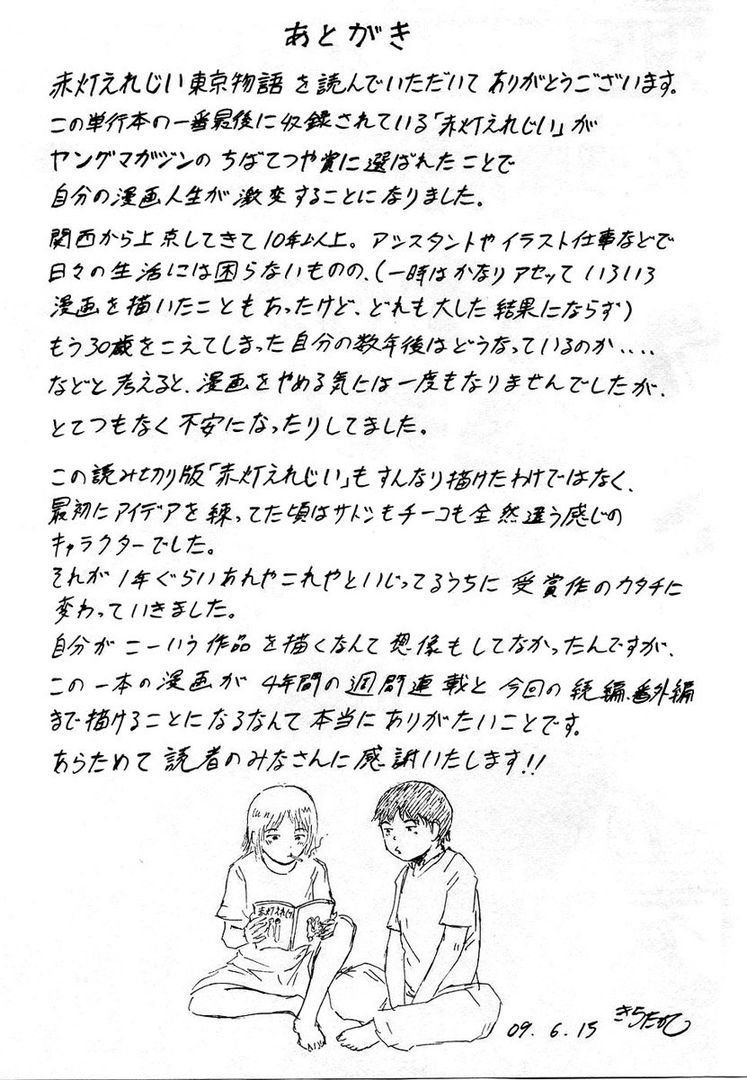 あとがき
赤灯えれじい東京物語を読んでいただいてありがとうございます。
この単行本の一番最後に収録されている「赤灯えれじい」が
ヤングマガジンのちばてつや賞に選ばれたことで
自分の漫画人生が激変することになりました。
関西から上京してきて10年以上。アシスタントやイラスト仕事などで
日々の生活には困らないものの、(一時はかなりアセッていろいろ
漫画を描いたこともあったけど、どれも大した結果にならず)
もう30歳をこえてしまった自分の数年後はどうなっているのか‥‥
などと考えると、漫画をやめる気には一度もなりませんでしたが、
とてつもなく不安になったりしてました。
この読み切り版「赤灯えれじい」もすんなり描けたわけではなく、
最初にアイデアを練ってた頃はサトシもチーコも全然違う感じの
キャラクターでした。
それが1年ぐらいあれやこれやといじってるうちに受賞作のカタチに
変わっていきました。
自分がこーいう作品を描くなんて想像もしてなかったんですが、
この一本の漫画が4年間の週間連載と今回の続編、番外編
まで描けることになるなんて本当にありがたいことです。
あらためて読者のみなさんに感謝いたします!!
赤灯えれじい
09.6.15 きらたかし